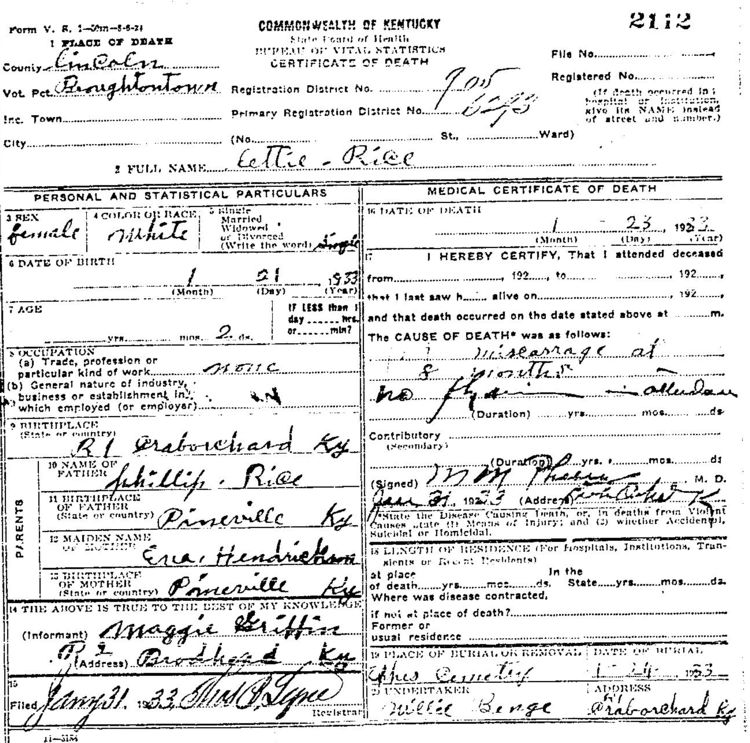 Form V. S. 1-50m-8-6-24
COMMONWEALTH OF KENTUCKY
2112
1 PLACE OF DEATH
State Board of Health
BUREAU OF VITAL STATISTICS
CERTIFICATE OF DEATH
County Lincoln
File No.
Vot. Pct. Broughtontown
Registration District No. 705
Registered No.
Inc. Town
Primary Registration District No.
(If death occurred in a hospital or institution, give its NAME instead of street and number.)
City (No. St., Ward)
2 FULL NAME Lettie - Rice
PERSONAL AND STATISTICAL PARTICULARS
3 SEX
female
4 COLOR OR RACE
White
5 Single
Married
Widowed
or Divorced
(Write the word) Single
6 DATE OF BIRTH
1 21 1933
(Month) (Day) (Year)
7 AGE
yrs. mos. 2 ds.
IF LESS than 1
day hrs.
or min?
8 OCCUPATION
(a) Trade, profession or
particular kind of work none
(b) General nature of industry,
business or establishment in
which employed (or employer)
9 BIRTHPLACE
(State or country)
R1 Craborchard Ky
PARENTS
10 NAME OF
FATHER
Phillip - Rice
11 BIRTHPLACE
OF FATHER
(State or country)
Pineville Ky
12 MAIDEN NAME
OF MOTHER
Eva Hendrickson
13 BIRTHPLACE
OF MOTHER
(State or country)
Pineville Ky
14 THE ABOVE IS TRUE TO THE BEST OF MY KNOWLEDGE
(Informant) Maggie Griffin
(Address) Brodhead Ky
15
Filed Jany 31 1933
Registrar
11-3184
MEDICAL CERTIFICATE OF DEATH
16 DATE OF DEATH
1 23 1933
(Month) (Day) (Year)
17 I HEREBY CERTIFY, That I attended deceased
from , 192 , to , 192 ,
that I last saw h alive on , 192 ,
and that death occurred on the date stated above at m.
The CAUSE OF DEATH* was as follows:
miscarrage at
8 months
no in attendance
(Duration) yrs. mos. ds.
Contributory
(Secondary)
(Duration) yrs. mos. ds.
(Signed) M M M. D.
Jan 31, 1933 (Address)
*State the Disease Causing Death, or, in deaths from Violent
Causes state (1) Means of Injury; and (2) whether Accidental,
Suicidal or Homicidal.
18 LENGTH OF RESIDENCE (For Hospitals, Institutions, Tran-
sients or Recent Residents)
at place In the
of death yrs. mos. ds. State yrs. mos. ds.
Where was disease contracted,
if not at place of death?
Former or
usual residence
19 PLACE OF BURIAL OR REMOVAL
DATE OF BURIAL
Cemetry
1-24 1933
20 UNDERTAKER
Willie Benge
ADDRESS
Craborchard Ky